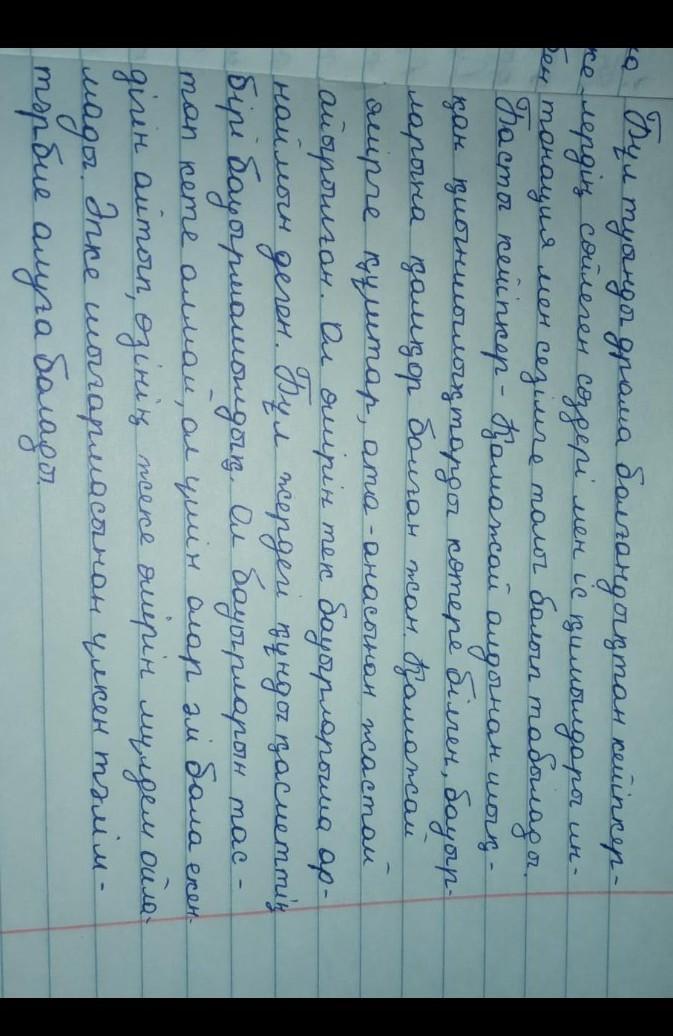 Бұл туынды драма болғандықтан кейіпкер-
лердің сөйлеген сөздері мен іс қимылдары ин-
тонация мен сезімге толы болып табылады.
Басты кейіпкер - Қамажай алдынан шық-
қан қиыншылықтарды көтере білген, бауыр-
ларына қамқор болған жан. Қамажай
өмірге құштар, ата-анасынан жастай
айырылған. Ол өмірін тек бауырларыма ар-
наймын деген. Бұл жердегі құнды қасиеттің
бірі бауырмашылдық. Ол бауырларын тас-
тап кете алмай, ол үшін олар әлі бала екен-
дігін айтып, өзінің жеке өмірін мүлдем ойла-
мады. Әпке шығармасынан үлкен тәлім-
тәрбие алуға болады.